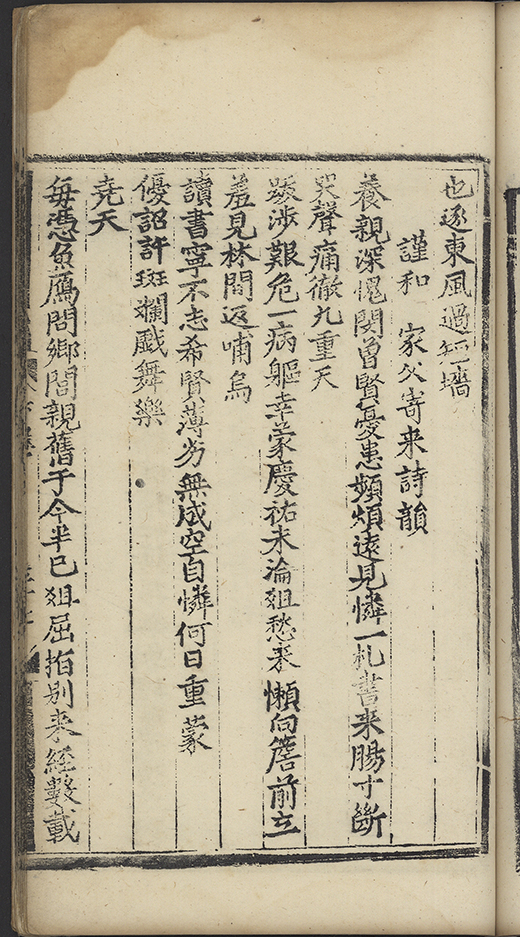 也逐東風過短墻
謹和　家父寄来詩韻
養親深愧閔曽賢憂患頻煩遠見憐一札書来腸寸斷
哭聲痛徹九重天
跋涉艱危一病軀幸蒙慶祐未淪殂愁来懶向簷前立
羞見林間返哺烏
讀書寧不志希賢薄劣無成空自憐何日重蒙
優詔許斑斕戯舞樂
堯天
每憑魚鴈問鄉閭親舊于今半已殂屈指別来經數載